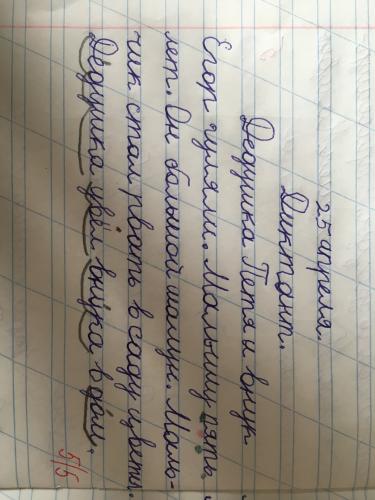 25 апреля.
Диктант.
Дедушка Петя и внук
Егор гуляли. Малышу пять
лет. Он большой шалун. Маль-
чик стал рвать в саду цветы.
Дедушка увёл внука в дом.
5/5